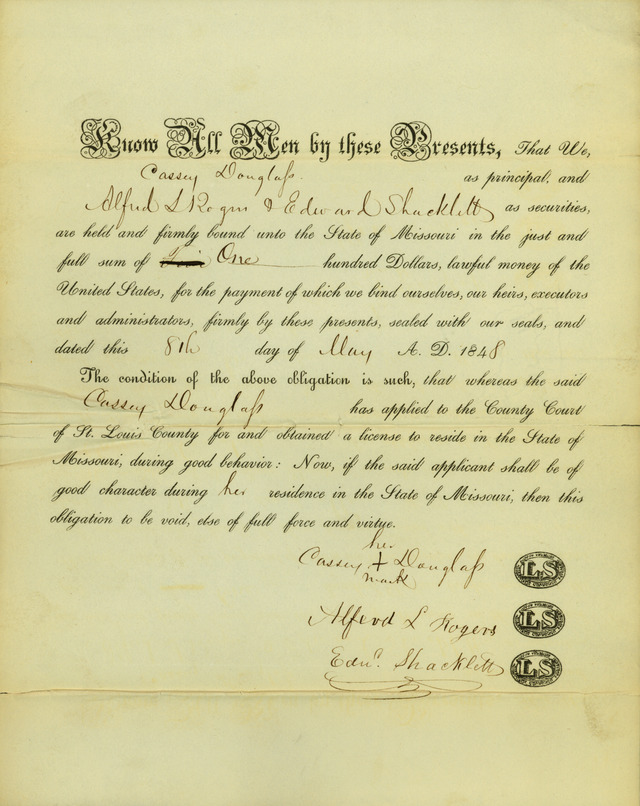 Know All Men by these Presents, That We,
Cassey Douglass. as principal, and
Alfred L Rogers & Edward Shacklett as securities,
are held and firmly bound unto the State of Missouri in the just and
full sum of One hundred Dollars, lawful money of the
United States, for the payment of which we bind ourselves, our heirs, executors
and administrators, firmly by these presents, sealed with our seals, and
dated this 8th day of May A. D. 1848
The condition of the above obligation is such, that whereas the said
Cassey Douglass has applied to the County Court
of St. Louis County for and obtained a license to reside in the State of
Missouri, during good behavior: Now, if the said applicant shall be of
good character during her residence in the State of Missouri, then this
obligation to be void, else of full force and virtue.
her
Cassey + Douglass LS
mark
Alferd L Rogers LS
Edwd. Shacklett LS